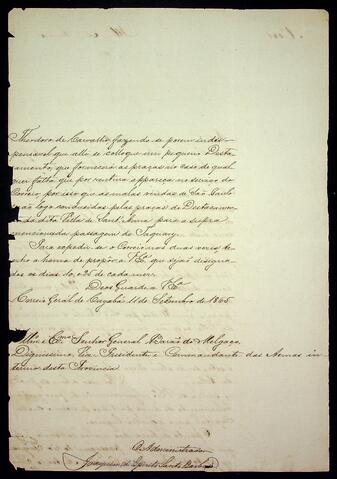 Theodoro de Carvalho, fazendo se porem indis-
pensavel que alli se colloque um pequeno Desta-
camento, que fornecerá as praças no caso de qual
quer falta que por ventura appareça no serviço do
Correio, por isso que as malas vindas de São Paulo
são logo conduzidas pelas praças do Destacamen
to da dita Villa de Sant'Anna para a supra
mencionada passagem do Taquary.
Para expedir se o Correio mas duas vezes, te
nho a honra de propôr a VEx.ª que sejão designa
dos os dias 10, e 25 de cada mez.
Deos Guarde a VEx.ª
Correio Geral de Cuyabá 11 de Setembro de 1865
Illmo e Exmo Senhor General Barão de Melgaço,
Dignissimo Vice Presidente e Commandante das Armas in
terino desta Provincia
O Administrador
Joaquim do Espirito Santo